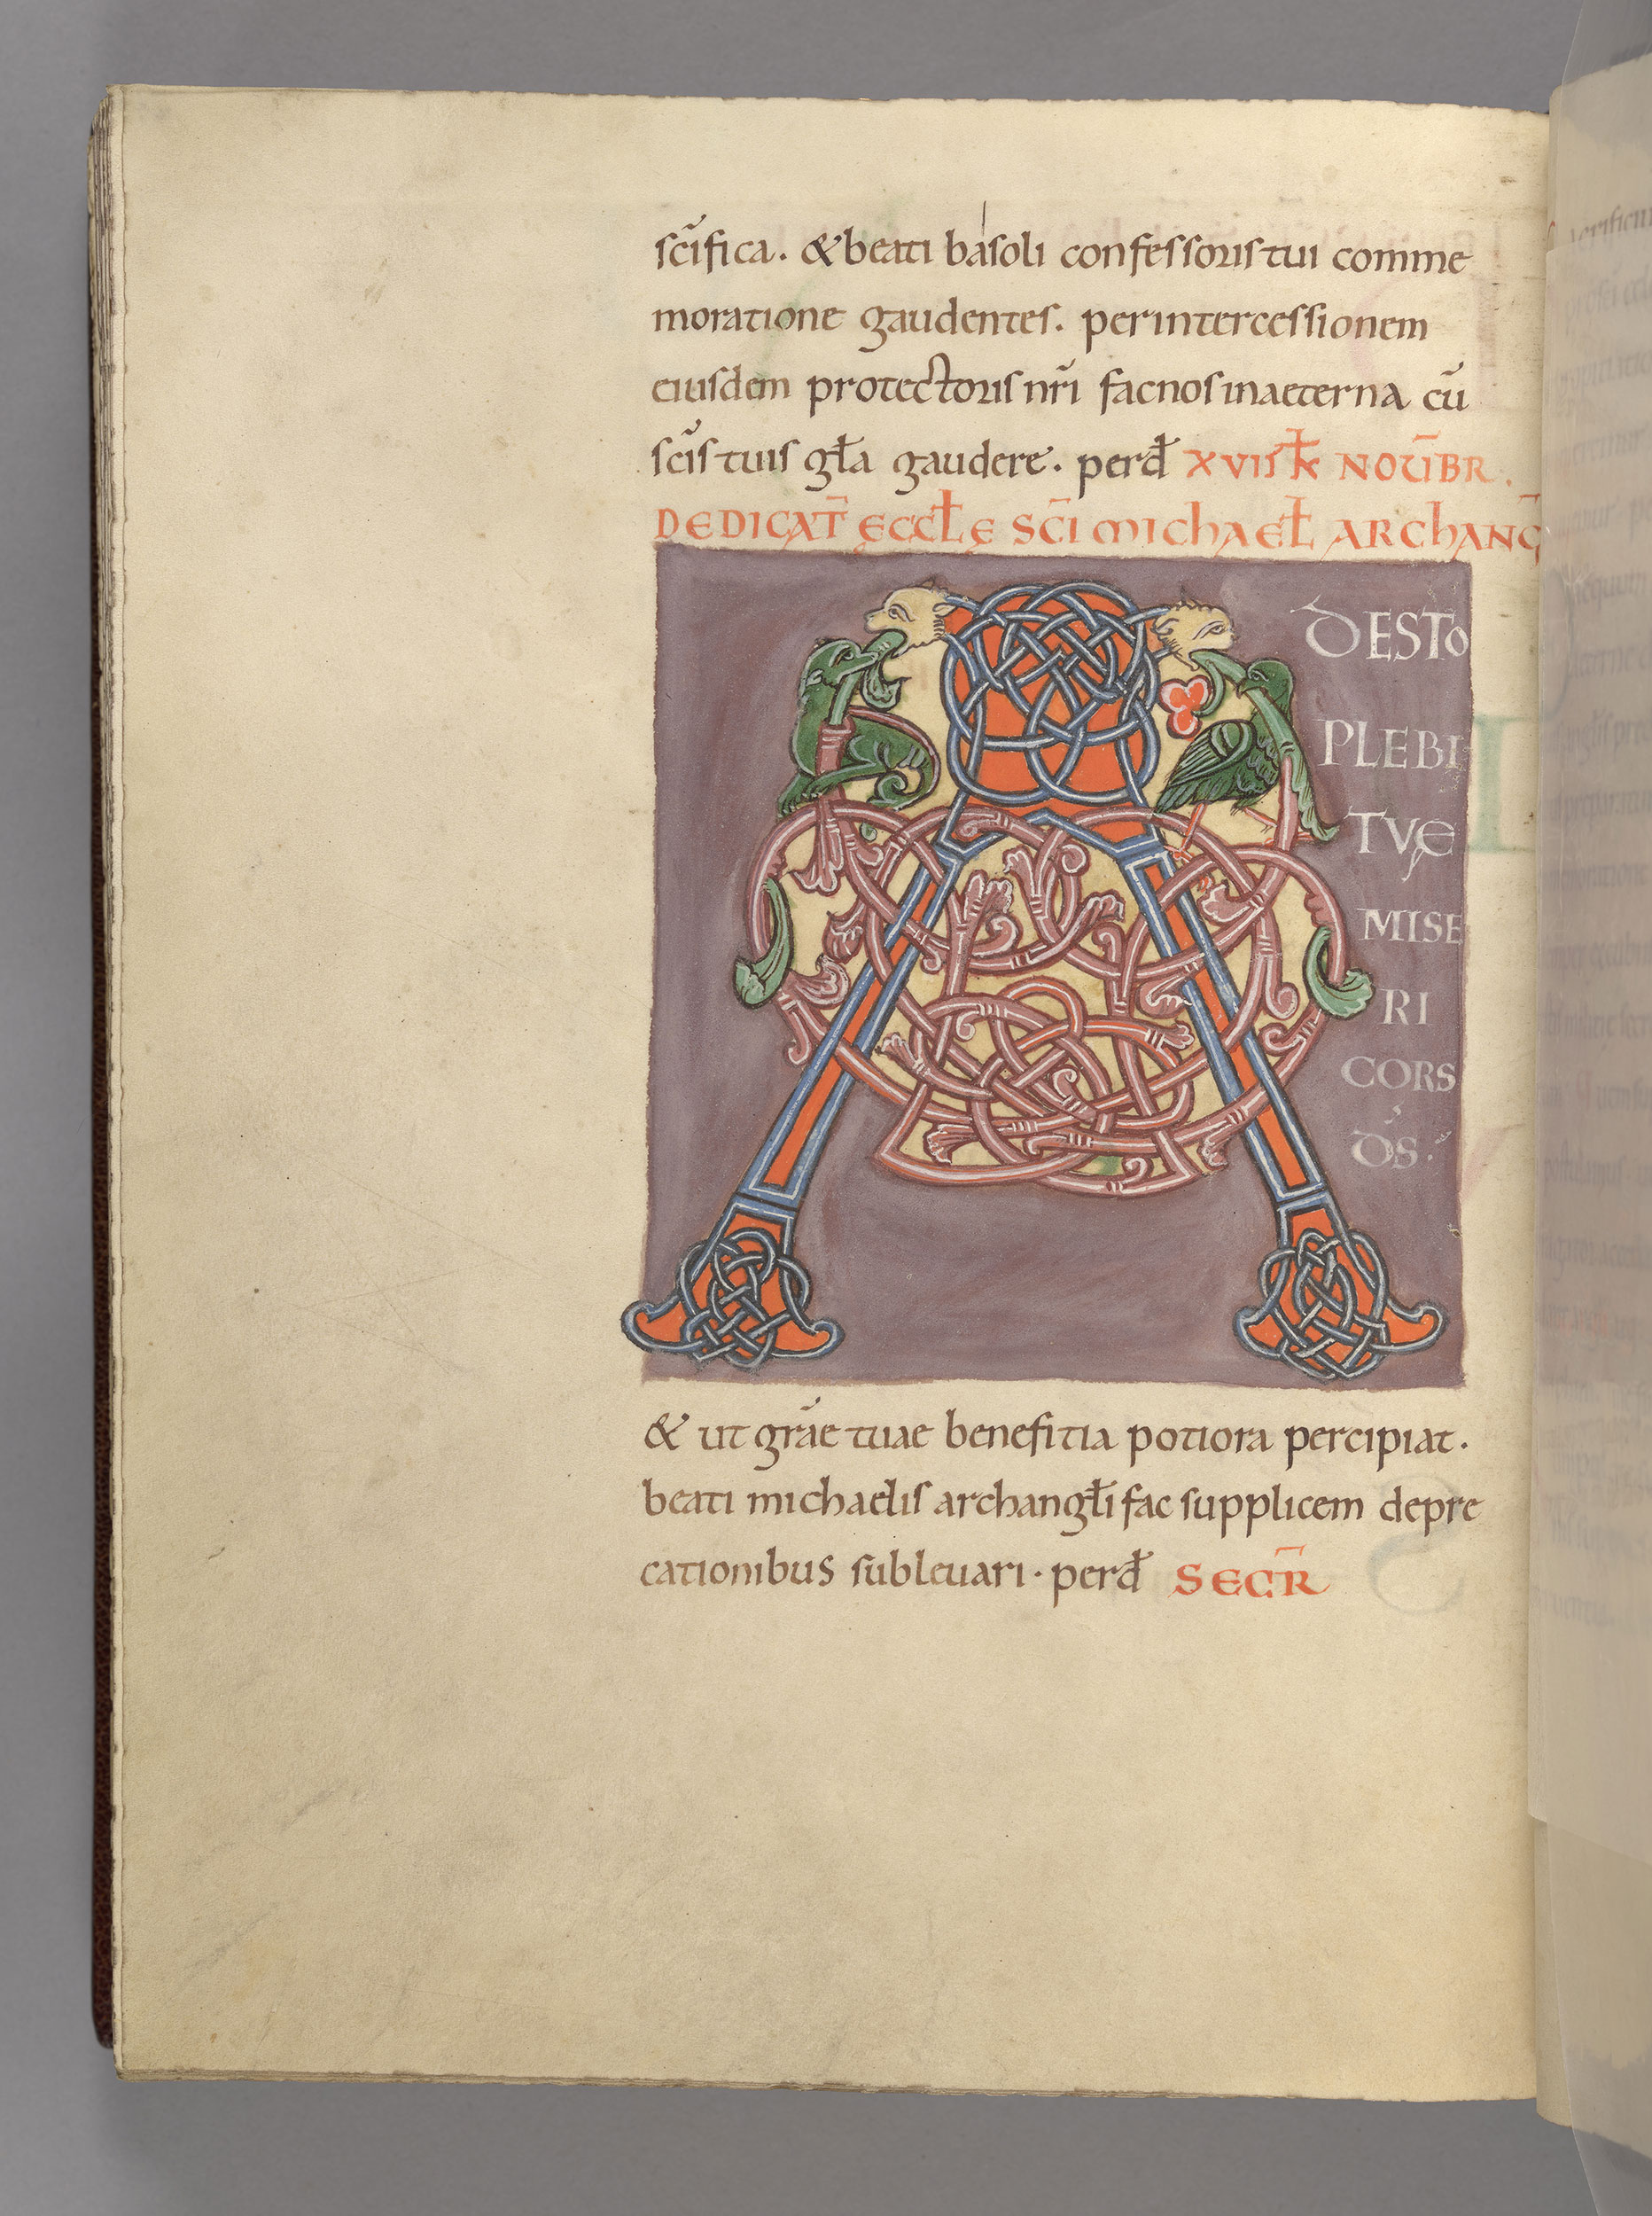 scĩfica. &beati basoli confessoris tui comme
moratione gaudentes. per intercessionem
eiusdem protectoris nr̃i fac nos in aeterna cũ
scĩs tuis gl̃a gaudere. per d̃ XVII k̃ NOṼBR.
DEDICAT̃ ECCL̃Ę SC̃I MICHAEL̃ ARCHANG̃
A
DESTO
PLEBI
TVĘ
MISE
RI
CORS
D̃S.
& ut grãe tuae benefitia potiora percipiat.
beati michaelis archangl̃i fac supplicem depre
cationibus subleuari. per d̃ SECR̃